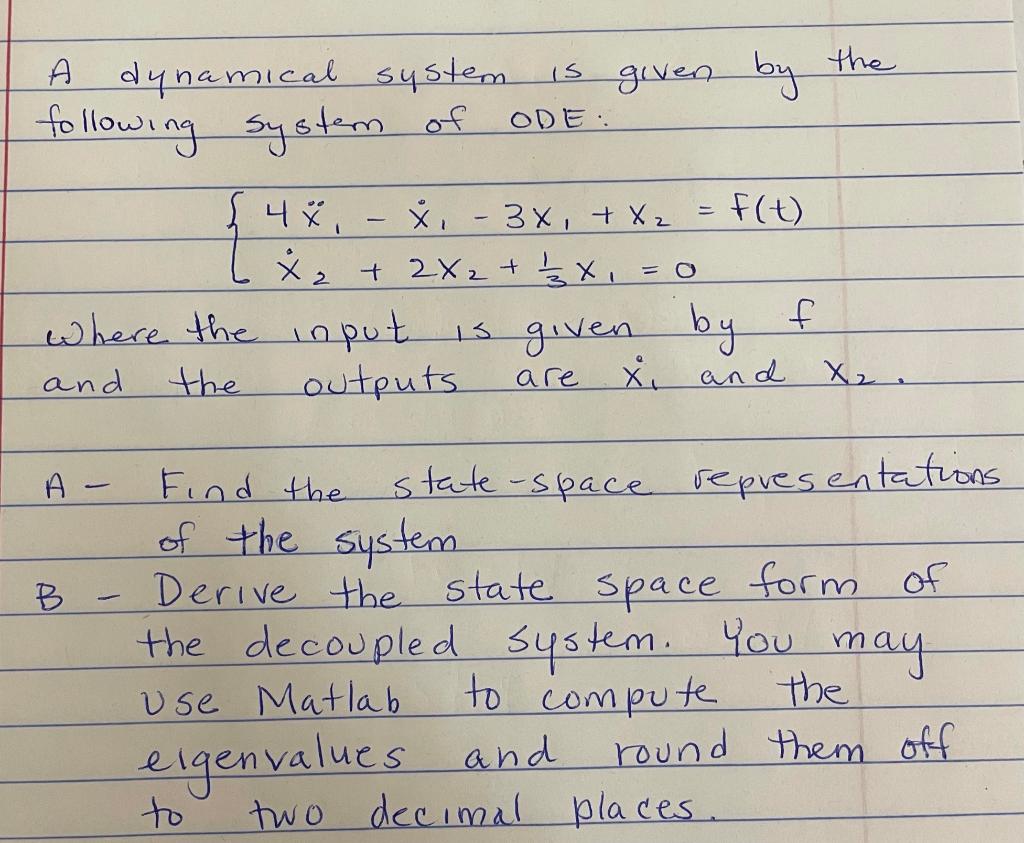 A dynamical system is given by the
following system of ODE:
{ 4ẍ₁ - ẋ₁ - 3x₁ + x₂ = f(t)
ẋ₂ + 2x₂ + 1/3 x₁ = 0
where the input is given by f
and the outputs are ẋ₁ and x₂.
A - Find the state-space representations
of the system
B - Derive the state space form of
the decoupled system. You may
use Matlab to compute the
eigenvalues and round them off
to two decimal places.